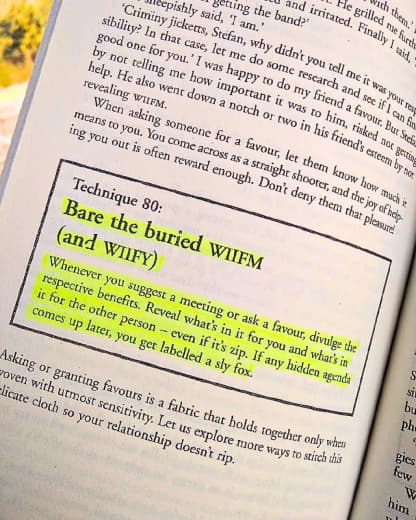 with them.
getting the band?'
and irritated. Finally I said,
He grilled me further
sheepishly said, 'I am.'
'Criminy jicketts, Stefan, why didn't you tell me it was your
sibility? In that case, let me do some research and see if I can find
good one for you.' I was happy to do my friend a favour. But Stefan
by not telling me how important it was to him, risked not getting
help. He also went down a notch or two in his friend's esteem by not
revealing WIIFM.
When asking someone for a favour, let them know how much it
means to you. You come across as a straight shooter, and the joy of help-
ing you out is often reward enough. Don't deny them that pleasure!
Technique 80:
Bare the buried WIIFM
(and WIIFY)
Whenever you suggest a meeting or ask a favour, divulge the
respective benefits. Reveal what's in it for you and what's in
it for the other person – even if it's zip. If any hidden agenda
comes up later, you get labelled a sly fox.
Asking or granting favours is a fabric that holds together only when
woven with utmost sensitivity. Let us explore more ways to stitch this
delicate cloth so your relationship doesn't rip.
gies
few
him